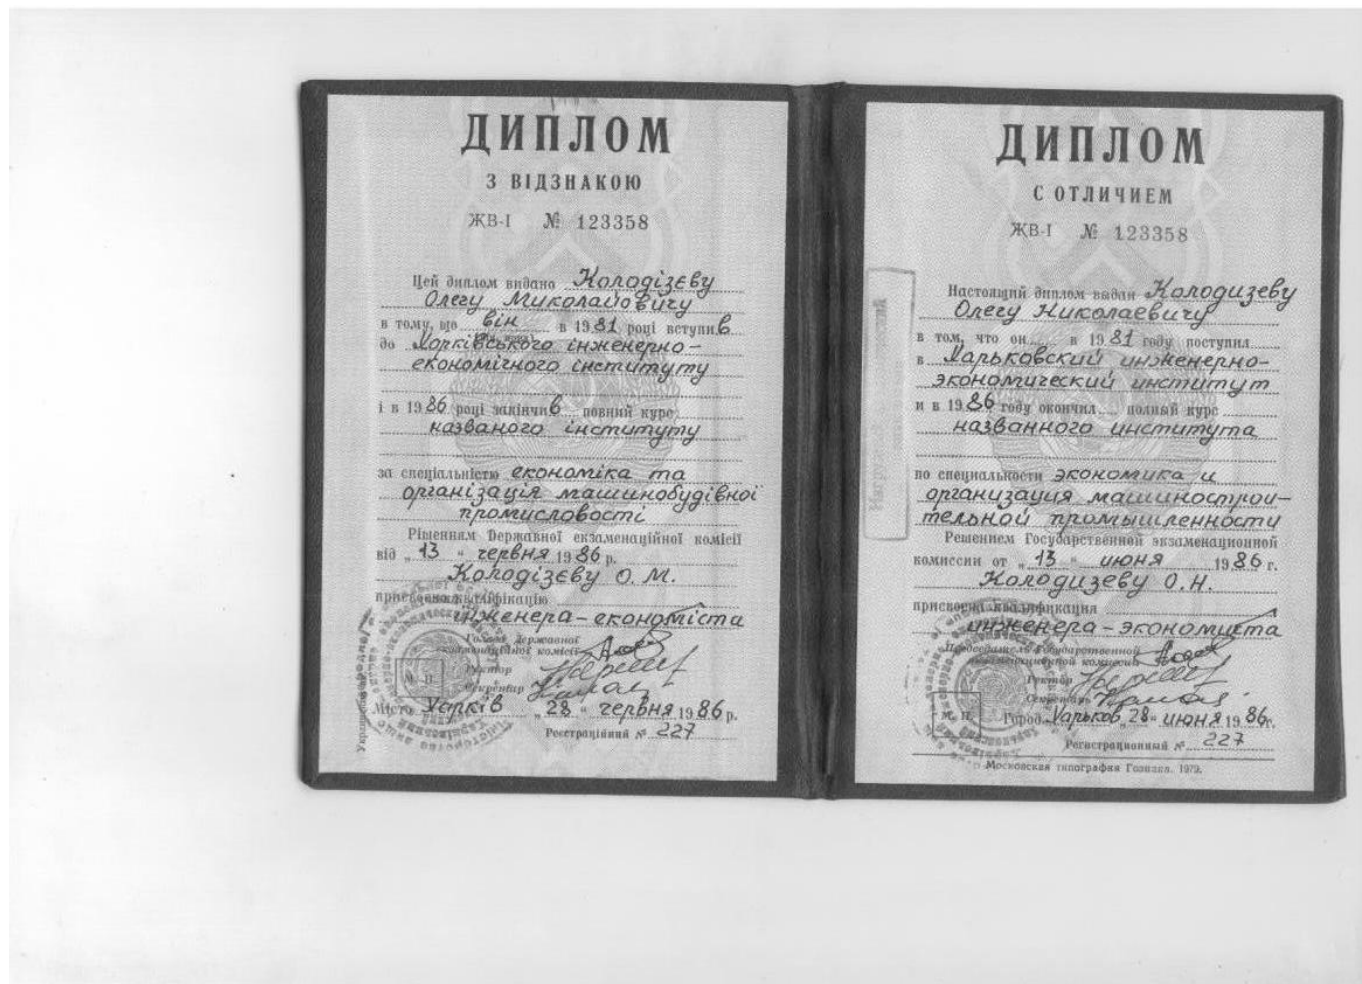 ДИПЛОМ
З ВІДЗНАКОЮ
ЖВ-І № 123358
Цей диплом видано Колодізєву
Олегу Миколайовичу
в тому, що він в 1981 році вступив
до Харківського інженерно-
економічного інституту
і в 1986 році закінчив повний курс
названого інституту
за спеціальністю економіка та
організація машинобудівної
промисловості
Рішенням Державної екзаменаційної комісії
від „13“ червня 1986 р.
Колодізєву О. М.
присвоєна кваліфікацію
інженера-економіста
Голова Державної
екзаменаційної комісії
Ректор
Секретар
М. П.
Місто Харків „28“ червня 1986 р.
Реєстраційний № 227
ДИПЛОМ
С ОТЛИЧИЕМ
ЖВ-І № 123358
Настоящий диплом выдан Колодизеву
Олегу Николаевичу
в том, что он в 1981 году поступил
в Харьковский инженерно-
экономический институт
и в 1986 году окончил полный курс
названного института
по специальности экономика и
организация машинострои-
тельной промышленности
Решением Государственной экзаменационной
комиссии от „13“ июня 1986 г.
Колодизеву О.Н.
присвоена квалификация
инженера-экономиста
Председатель Государственной
экзаменационной комиссии
Ректор
Секретарь
М. П.
Город Харьков „28“ июня 1986 г.
Регистрационный № 227
Московская типография Гознака. 1979.